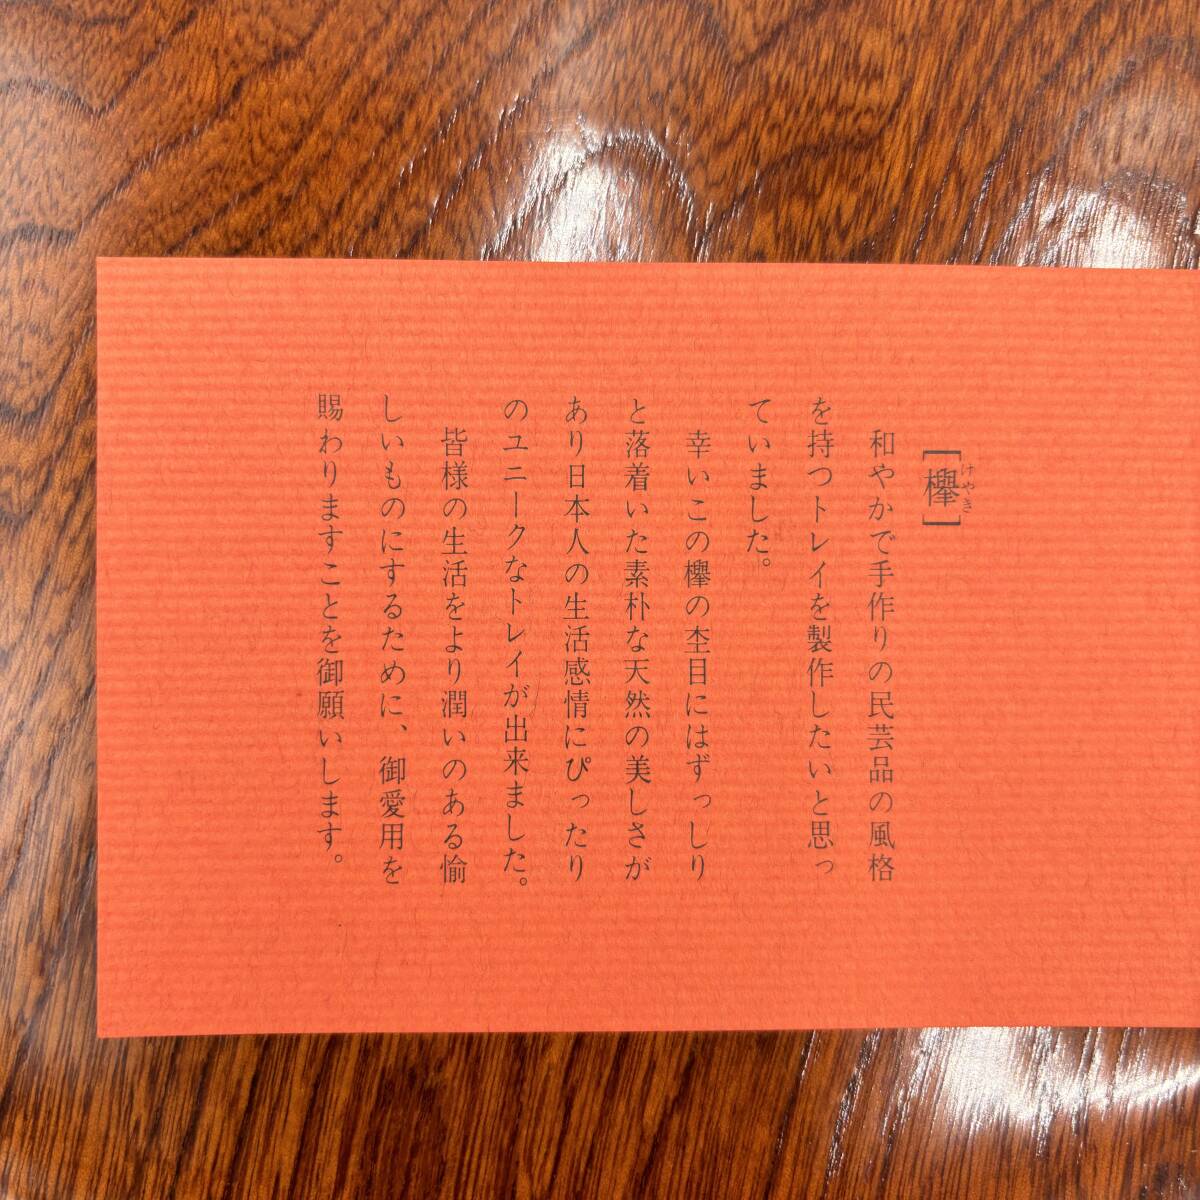 ［欅］
けやき
和やかで手作りの民芸品の風格
を持つトレイを製作したいと思っ
ていました。
幸いこの欅の杢目にはずっしり
と落着いた素朴な天然の美しさが
あり日本人の生活感情にぴったり
のユニークなトレイが出来ました。
皆様の生活をより潤いのある愉
しいものにするために、御愛用を
賜わりますことを御願いします。